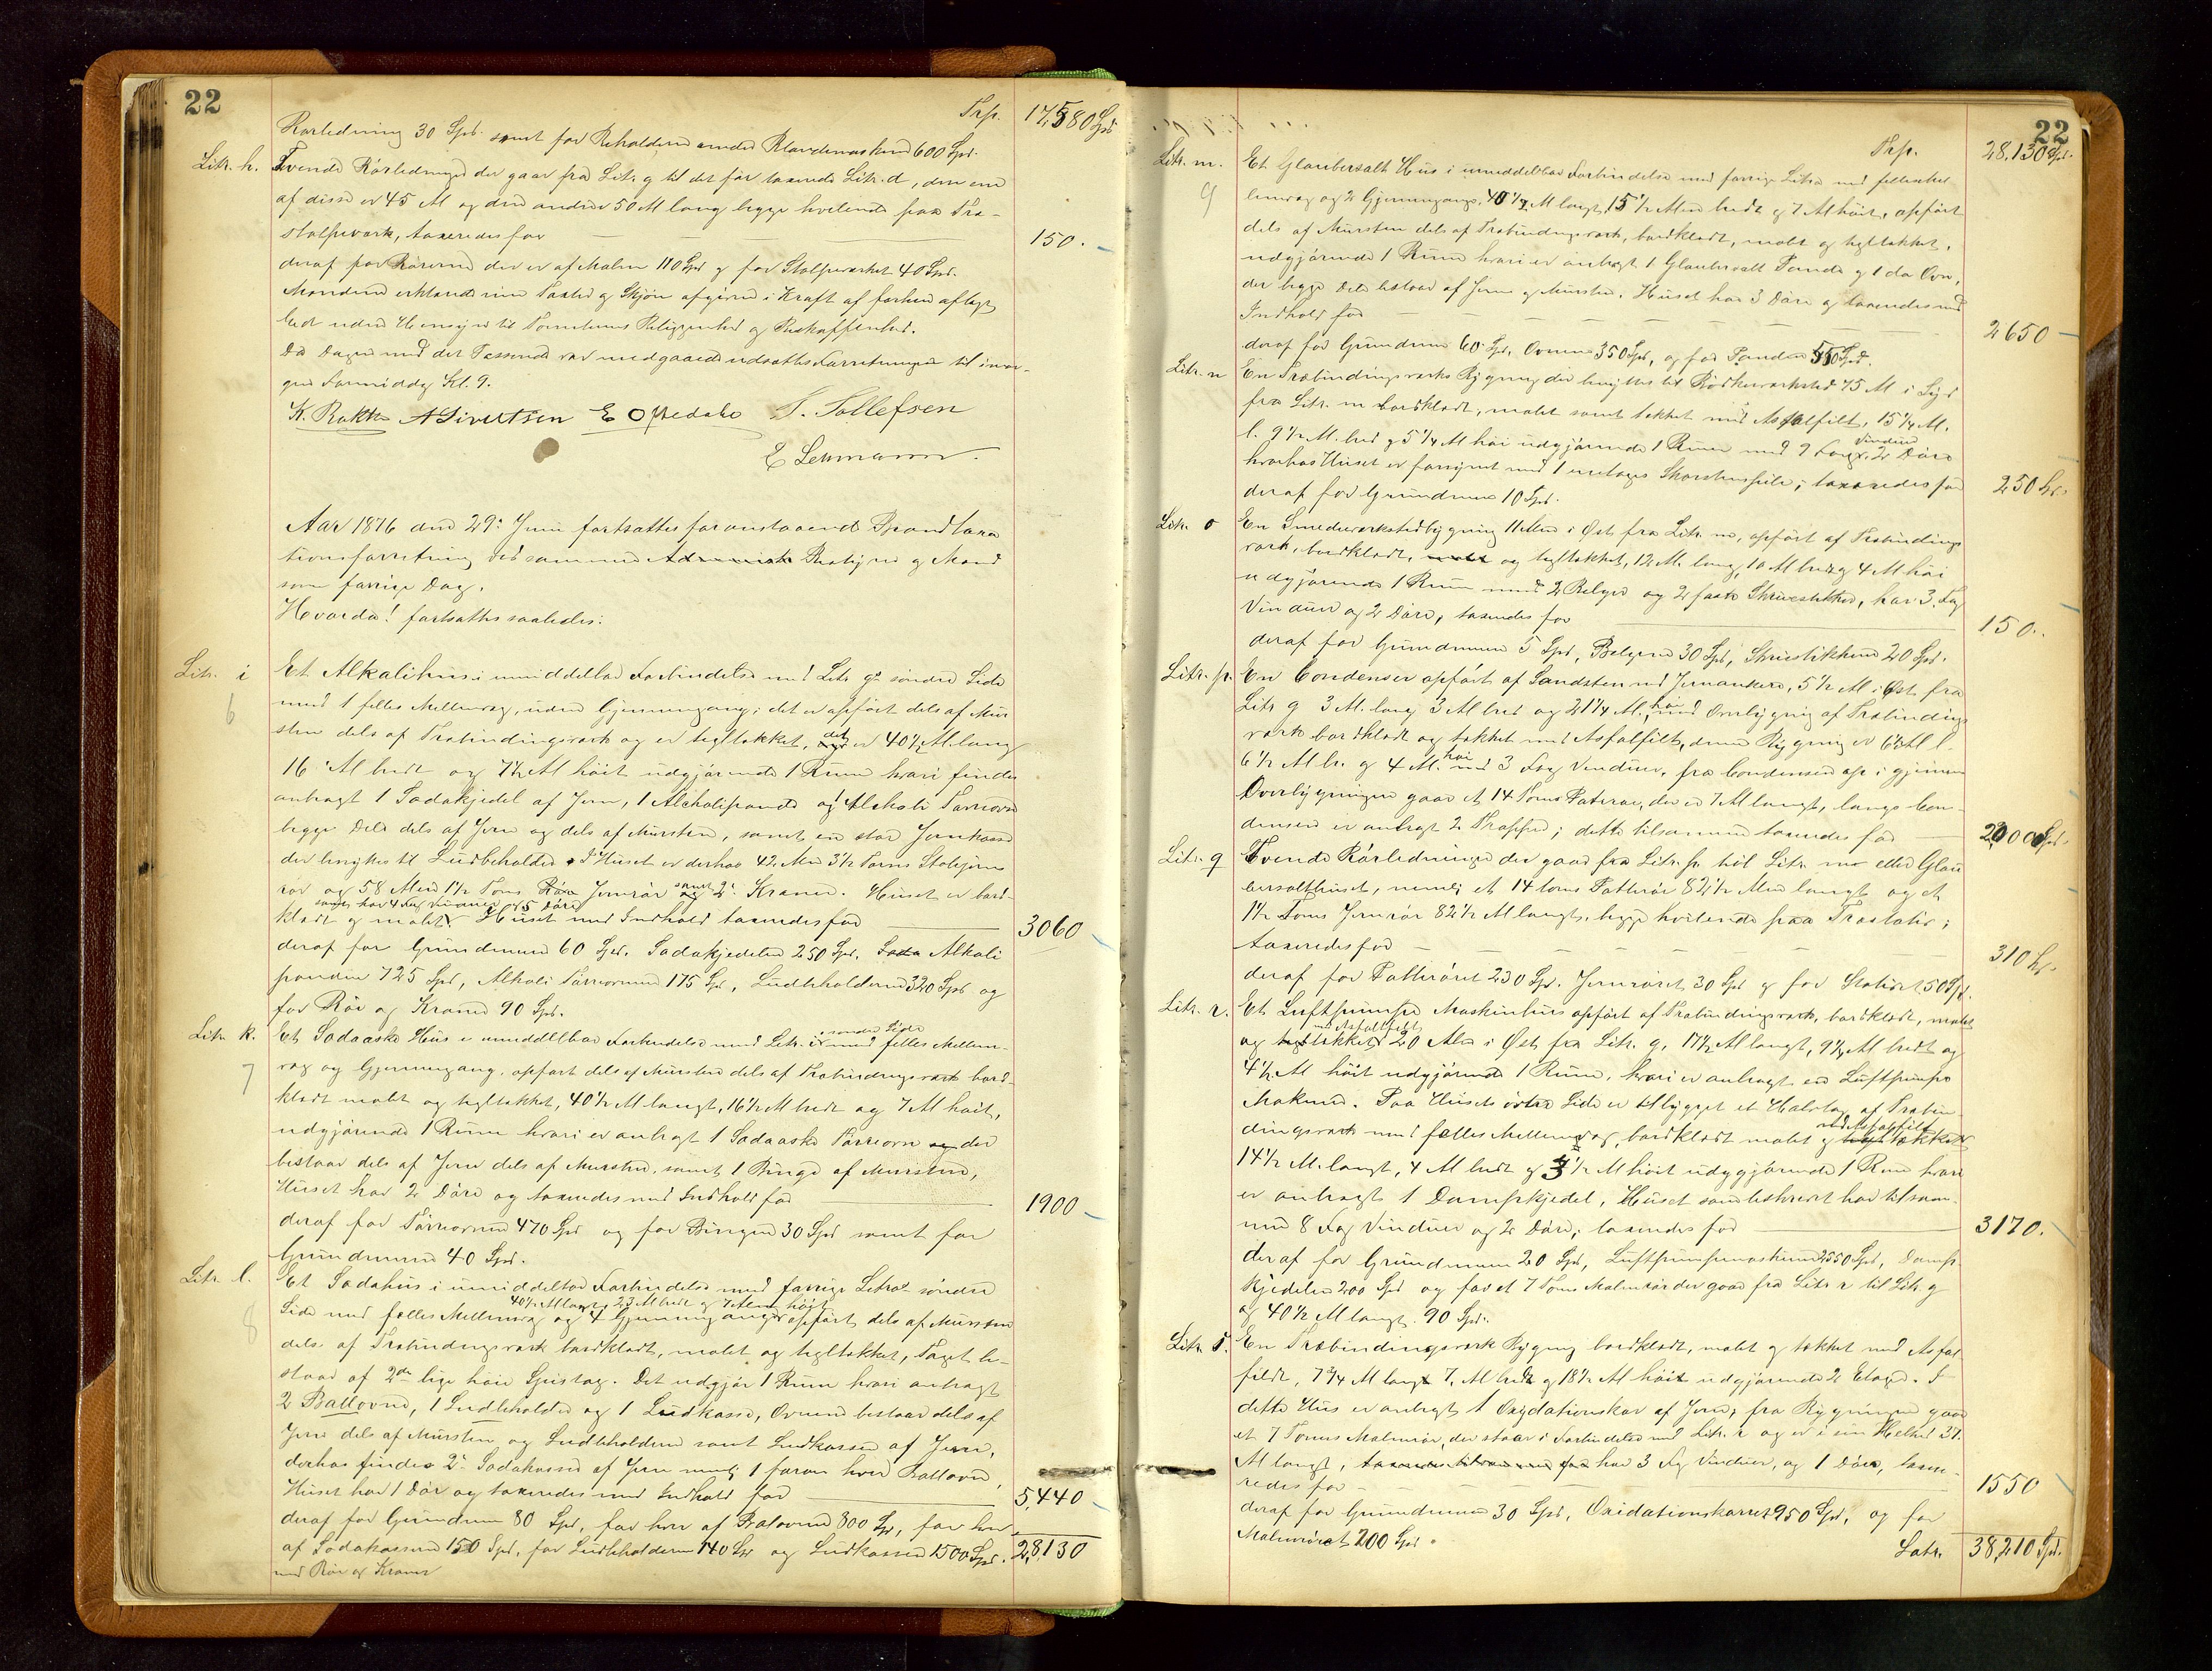 22
Trp. 17,580 Spd
Rørledning 30 Spd. samt for Beholderen under 600 Spd.
Litr. h. Tvende Rørledninger der gaar fra Litr. g til det før taxerede Litr. d, den ene
af disse er 45 Al og den anden 50 Al lang begge hvilende paa Træ-
stolpeværk, taxeredes for 150. -
deraf for Rørene der er af Malm 110 Spd og for Stolpeværket 40 Spd.
Mændene erklærede sine Taxter og Skjøn afgivne i Kraft af forhen aflagt
Eed uden Hensyn til Tomtens Beliggenhed og Beskaffenhed.
Da Dagen med det Passerede var medgaaet udsattes Forretningen til imor-
gen Formiddag Kl. 9.
K. Bakke A Sivertsen E Oftedahl T. Tollefsen
E Lehmann.
Aar 1876 den 29. Juni fortsattes foranstaaende Brandtaxa
tionsforretning ved samme Bestyrer og Mænd
som forrige Dag.
Hvorda! fortsattes saaledes:
Litr. i Et Alkalihus i umiddelbar Forbindelse med Litr g's søndre Side
6 med 1 fælles Mellemvæg, uden Gjennemgang; det er opført dels af Mur
sten dels af Træbindingsværk og er tegltækket, det er 40½ Al. lang
16 Al bredt og 7½ Al høit udgjørende 1 Rum hvori findes
anbragt 1 Sodakjedel af Jern, 1 Alkalipande og 1 Alkali Tørreovn
begge Dele dels af Jern og dels af Mursten, samt en stor Jernkasse
der benyttes til Ludbeholder. I Huset er derhos 42 Alen 3½ Toms Støbejerns
rør og 58 Alen 1½ Toms Jernrør samt 2 Kraner. Huset er bord-
samt har 4 Fag Vinduer og 5 Døre
klædt og malet. Huset med Indhold taxeredes for 3060 -
deraf for Grundmuren 60 Spd. Sodakjedelen 250 Spd, Soda Alkali
panden 725 Spd, Alkali Tørreovnen 175 Spd, Ludbeholderen 320 Spd og
for Rør og Kraner 90 Spd.
Litr. k. Et Sodaaske Hus i umiddelbar Forbindelse med Litr. i søndre Side med fælles Mellem-
7 væg og Gjennemgang. opført dels af Mursten dels af Træbindingsværk bord-
klædt malet og tegltækket, 40½ Al langt, 16½ Al bredt og 7 Al høit,
udgjørende 1 Rum hvori er anbragt 1 Sodaaske Tørreovn og der
bestaar dels af Jern dels af Mursten, samt 1 Binge af Mursten,
Huset har 2 Døre og taxeredes med Indhold for 1900 -
deraf for Tørreovnen 470 Spd og for Bingen 30 Spd samt for
Grundmuren 40 Spd.
Litr. l. Et Sodahus i umiddelbar Forbindelse med forrige Litras søndre
40½ Al langt, 23 Al bredt og 7 Alen høit
8 Side med fælles Mellemvæg og 4 Gjennemgange opført dels af Mursten
dels af Træbindingsværk bordklædt, malet og tegltækket, Taget be-
staar af 2de lige høie Spistag. Det udgjør 1 Rum hvori anbragt
2 Ballovne, 1 Ludbeholder og 1 Ludkasse, Ovnene bestaar dels af
Jern dels af Mursten og Ludbeholderen samt Ludkassen af Jern,
derhos findes 2 Sodakasser af Jern nemlig 1 foran hver Ballovn,
Huset har 1 Dør og taxeredes med Indhold for 5,440 -
deraf for Grundmuren 80 Spd, for hver af Balovnene 800 Spd, for hver
af Sodakasserne 150 Spd, for Ludbeholderen 140 Spd og Ludkassen 1500 Spd. 28,130
med Rør og Kraner
22
Trp. 28,130 Spd.
Litr. m. Et Glaubersalt Hus i umiddelbar Forbindelse med forrige Litra med fælles Mel
9 lemvæg og 2 Gjennemgange, 40¼ Al langt, 15½ Alen bredt og 7 Al høit, opført
dels af Mursten dels af Træbindingsværk, bordklædt, malet og tegltækket,
udgjørende 1 Rum hvori er anbragt 1 Glaubersalt Pande og 1 do Ovn,
der begge Dele bestaar af Jern og Mursten. Huset har 3 Døre og taxeredes med
Indhold for 2650 -
deraf for Grundmuren 60 Spd, Ovnen 350 Spd, og for Panden 550 Spd.
Litr. n En Træbindingsværks Bygning der benyttes til Bødkerværksted 75 Al i Syd
fra Litr. m bordklædt, malet samt tækket med Asfalfilt, 15¼ Al.
l. 9½ Al. bred og 5¼ Al høi udgjørende 1 Rum med 9 Fag Vinduer 2 Døre
hvorhos Huset er forsynet med 1 enetages Skorstenspibe; taxeredes for 250 Spd.
deraf for Grundmuren 10 Spd.
Litr. o En Smedeværkstedbygning 11 Alen i Øst fra Litr. m, opført af Træbindings
værk, bordklædt, malet og tegltækket, 12 Al. lang, 10 Al bred og 4 Al høi
udgjørende 1 Rum med 2 Belger og 2 faste Skruestikker, har 3 Fag
Vinduer og 2 Døre, taxeredes for 150. -
deraf for Grundmuren 5 Spd, Belgene 30 Spd, Skruestikkene 20 Spd.
Litr. p. En Condenser opført af Sandsten med Jernankere, 5½ Al i Øst fra
Litr g 3 Al. lang 3 Al bred og 21¼ Al. høi, med Overbygning af Træbindings
værk bordklædt og tækket med Asfalfilt, denne Bygning er 6½ Al l.
6½ Al br. og 4 Al. høi med 3 Fag Vinduer, fra Condenseren op i gjennem
Overbygningen gaar et 14 Toms Paterør, der er 7 Al langt, langs Con-
denseren er anbragt 2 Trapper; dette tilsammen taxeredes for 2000 Spd.
Litr. q Tvende Rørledninger der gaar fra Litr. p til Litr. m eller Glau
bersalthuset, nemlig et 14 toms Potterør 82½ Alen langt og et
1½ Toms Jernrør 82½ Al langt, begge hvilende paa Træstativ;
taxeredes for 310 Spd.
deraf for Potterøret 230 Spd. Jernrøret 30 Spd og for Stativet 50 Spd.
Litr. r. Et Luftpumpe Maskinhus opført af Træbindingsværk, bordklædt, malet
med Asfaltfilt
og tegltækket 20 Alen i Øst fra Litr. g, 17½ Al langt, 9½ Al bredt og
4½ Al høit udgjørende 1 Rum, hvori er anbragt en Luftpumpe
Maskine. Paa Husets østre Side er tilbygget et Halvtag af Træbin-
med Asfalfilt
dingsværk med fælles Mellemvæg, bordklædt malet og tegl tækket
14½ Al. langt, 4 Al bredt og 3½ Al høit udgjørende 1 Rum hvori
er anbragt 1 Dampkjedel, Huset som beskrevet har tilsam-
men 8 Fag Vinduer og 2 Døre; taxeredes for 3170. -
deraf for Grundmuren 20 Spd, Luftpumpemaskinen 2550 Spd, Damp-
kjedelen 200 Spd og for et 7 Toms Malmrør der gaar fra Litr. r til Litr. g
og 40½ Al langt. 90 Spd.
Litr. s. En Træbindingsværk Bygning bordklædt, malet og tækket med Asfal
fildt, 7¾ Al langt 7, Al bredt og 18½ Al høit udgjørende 2 Etager. I
dette Hus er anbragt 1 Oxydationskar af Jern, fra Bygningen gaar
et 7 Toms Malmrør, der staar i Forbindelse med Litr. r og er i sin Helhed 37.
Al langt, har 3 Fag Vinduer, og 1 Dør, taxe-
redes for 1550 -
deraf for Grundmuren 30 Spd, Oxidationskarret 950 Spd, og for
Malmrøret 200 Spd.
Latr. 38,210 Spd.